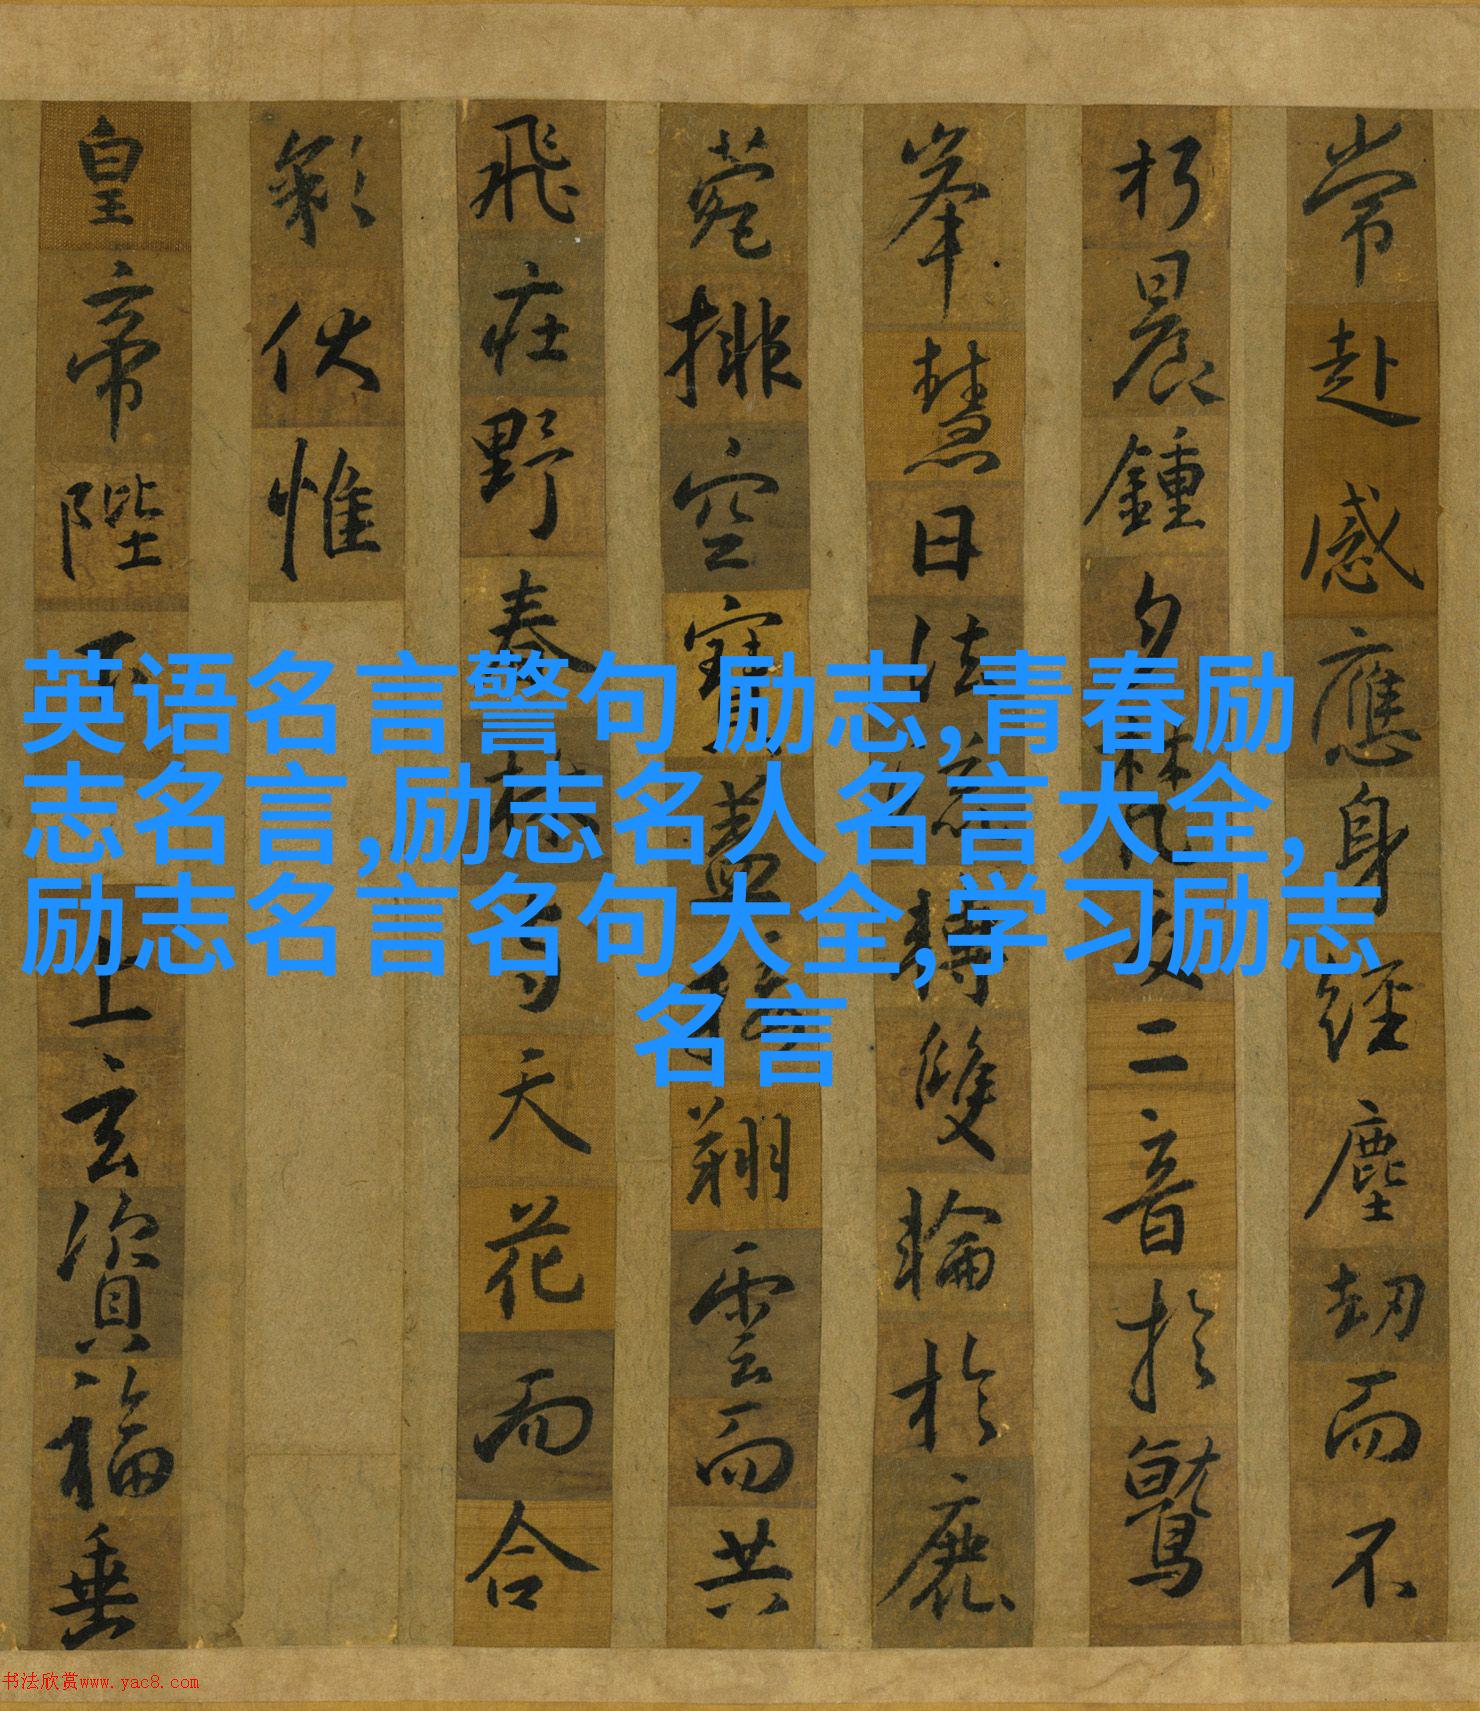 常赴感應身經塵劫而不
朽晨鍾夕梵交二音於鷲
峯慧日法流轉雙輪於鹿
菀排空寶蓋接翔雲而共
飛莊野春林与天花而合
彩伏惟
皇帝陛下上玄資福垂
英语名言警句 励志,青春励
志名言,励志名人名言大全,
励志名言名句大全,学习励志
名言
书法欣赏www.yac8.com